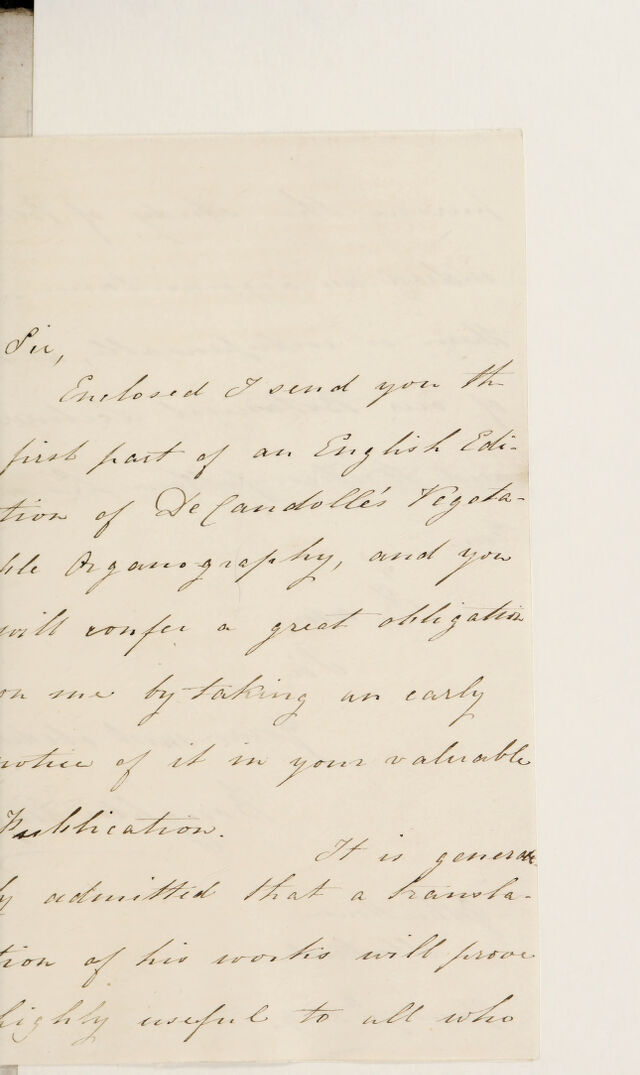 Sir,
Enclosed I send you the
first part of an English Edi-
tion of DeCandolle's Vegeta-
ble Organography, and you
will confer a great obligation
on me by taking an early
notice of it in your valuable
Publication.
It is general-
ly admitted that a transla-
tion of his works will prove
highly useful to all who